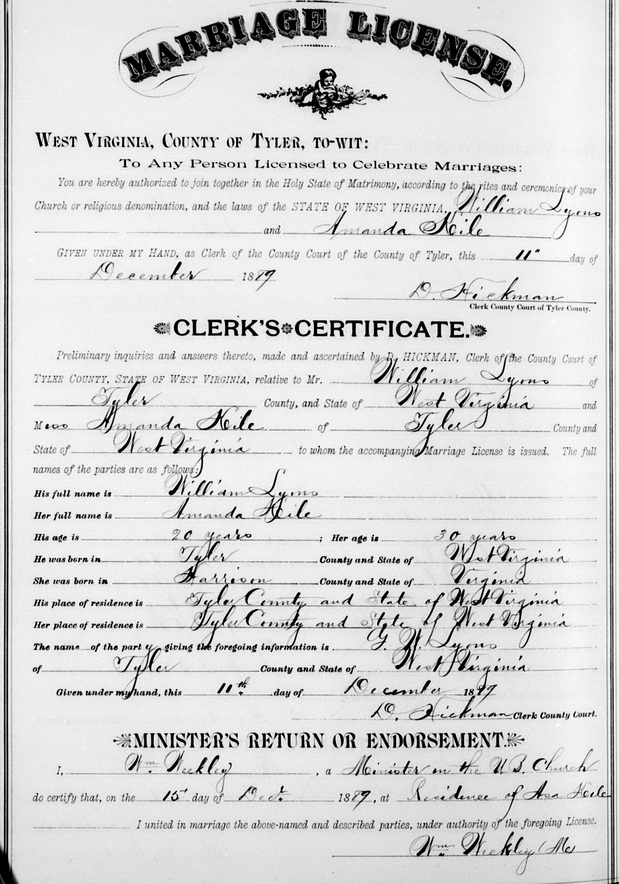 MARRIAGE LICENSE.
WEST VIRGINIA, COUNTY OF TYLER, TO-WIT:
To Any Person Licensed to Celebrate Marriages:
You are hereby authorized to join together in the Holy State of Matrimony, according to the rites and ceremonies of your
Church or religious denomination, and the laws of the STATE OF WEST VIRGINIA, William Lyons
and Amanda Hile
GIVEN UNDER MY HAND, as Clerk of the County Court of the County of Tyler, this 11" day of
December 1889
D. Hickman
Clerk County Court of Tyler County.
CLERK'S CERTIFICATE.
Preliminary inquiries and answers thereto, made and ascertained by D. HICKMAN, Clerk of the County Court of
TYLER COUNTY, STATE OF WEST VIRGINIA, relative to Mr. William Lyons of
Tyler County, and State of West Virginia and
Miss Amanda Hile of Tyler County and
State of West Virginia to whom the accompanying Marriage License is issued. The full
names of the parties are as follows:
His full name is William Lyons
Her full name is Amanda Hile
His age is 20 years ; Her age is 30 years
He was born in Tyler County and State of West Virginia
She was born in Harrison County and State of Virginia
His place of residence is Tyler County and State of West Virginia
Her place of residence is Tyler County and State of West Virginia
The name of the party giving the foregoing information is G. W. Lyons
of Tyler County and State of West Virginia
Given under my hand, this 11th day of December 1889
D. Hickman Clerk County Court.
MINISTER'S RETURN OR ENDORSEMENT.
I, Wm. Weekley, a Minister in the U.B. Church
do certify that, on the 15 day of Dec. 1889, at Residence of Asa Hile
I united in marriage the above-named and described parties, under authority of the foregoing License.
Wm. Weekley